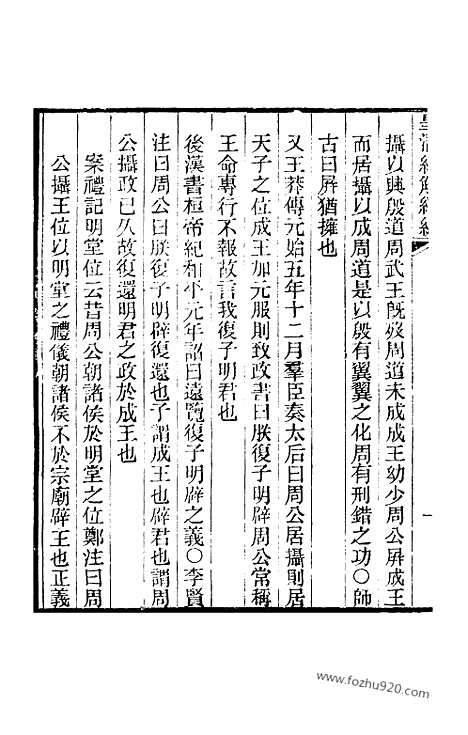 皇清經解續編
攝以興殷道周武王旣歿周道未成成王幼少周公屛成王
而居攝以成周道是以殷有翼翼之化周有刑錯之功〇師
古曰屛猶擁也
又王莽傳元始五年十二月羣臣奏太后曰周公居攝則居
天子之位成王加元服則致政書曰朕復子明辟周公常稱
王命專行不報故言我復子明君也
後漢書桓帝紀和平元年詔曰遠覽復子明辟之義〇李賢
注曰周公曰朕復子明辟復還也子謂成王也辟君也謂周
公攝政已久故復還明君之政於成王也
案禮記明堂位云昔周公朝諸侯於明堂之位鄭注曰周
公攝王位以明堂之禮儀朝諸侯不於宗廟辟王也正義
一
www.fozhu920.com